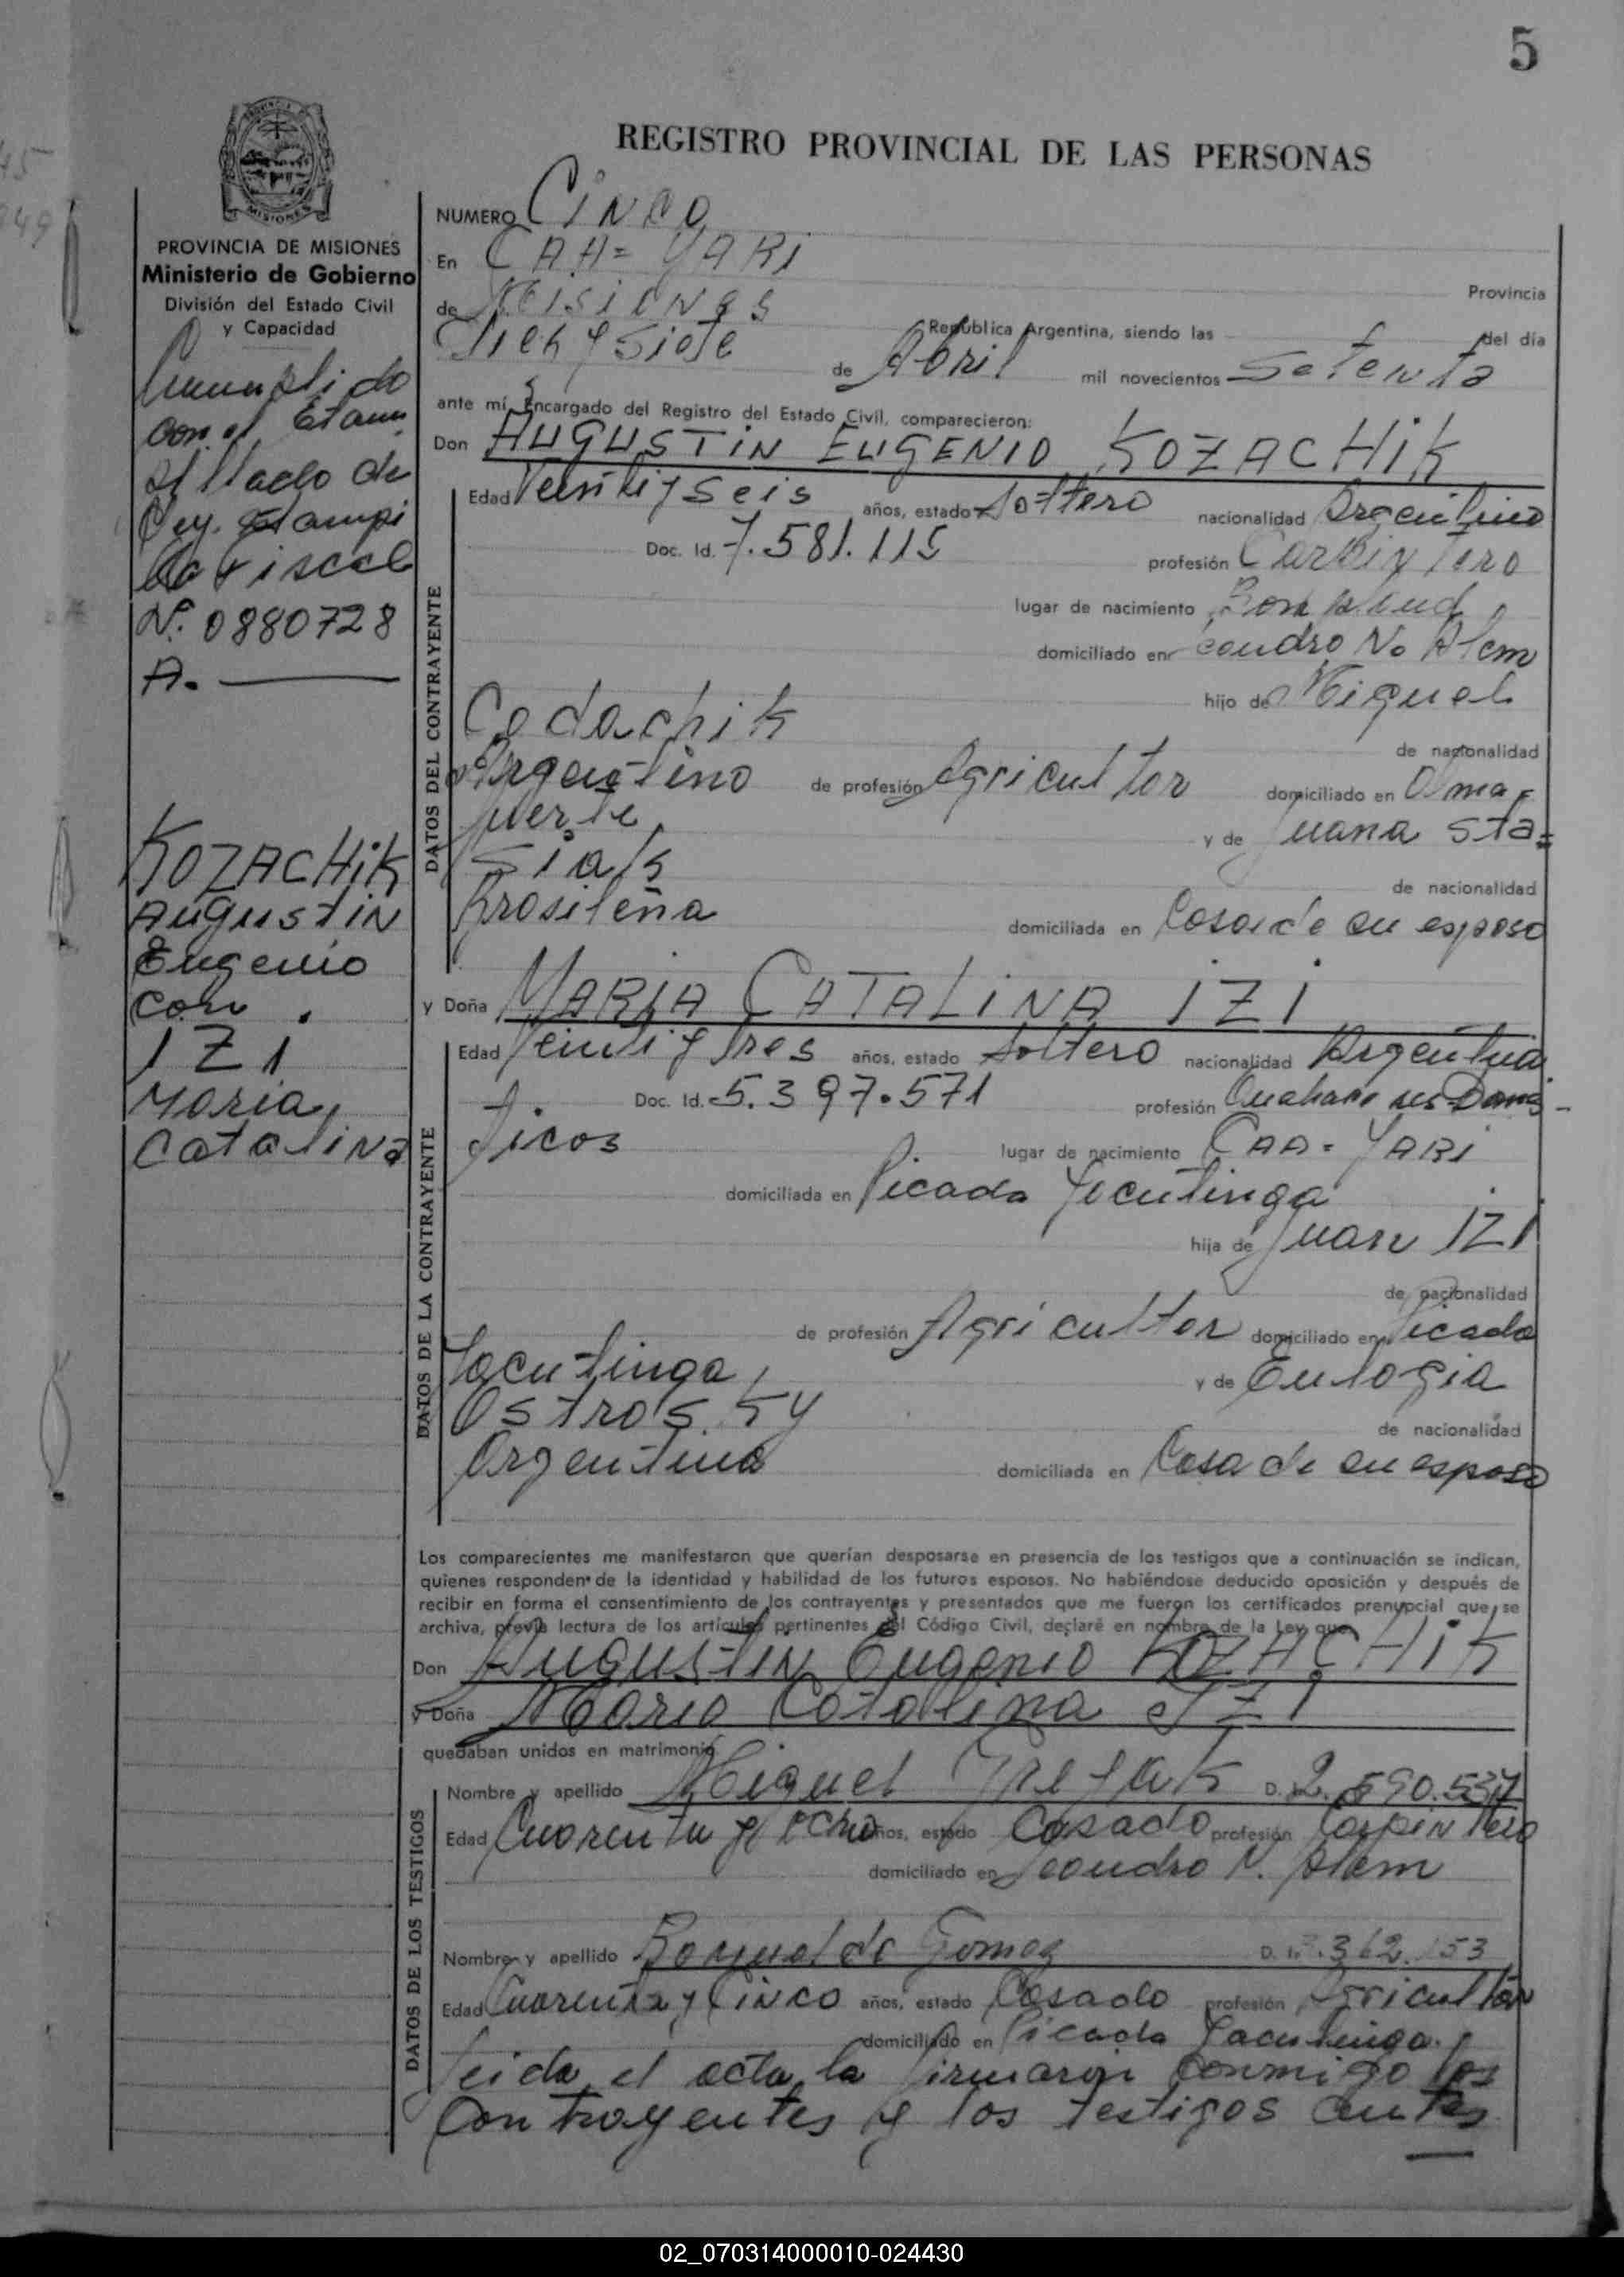 5
REGISTRO PROVINCIAL DE LAS PERSONAS
MISIONES
PROVINCIA DE MISIONES
Ministerio de Gobierno
División del Estado Civil
y Capacidad
Cumplido
con el Etam
pillado de
Ley. Estampi
lla Fiscal
Nº. 0880728
A.
KOZACHIK
AUGUSTIN
Eugenio
con
IZI
Maria
Catalina
NUMERO CINCO
En CAA=YARI
Provincia
de MISIONES República Argentina, siendo las del día
Diez y Siete de Abril mil novecientos Setenta
ante mí, Encargado del Registro del Estado Civil, comparecieron:
Don AUGUSTIN EUGENIO KOZACHIK
DATOS DEL CONTRAYENTE
Edad Veinti y Seis años, estado Soltero nacionalidad Argentino
Doc. Id. 7.581.115 profesión Carpintero
lugar de nacimiento Bonpland
domiciliado en Leandro N. Alem
hijo de Miguel
Codachik
de nacionalidad
Argentino de profesión Agricultor domiciliado en Olma=
puerte y de Juana Sta=
siak
de nacionalidad
Brasileña domiciliada en Casa de su esposo
y Doña MARIA CATALINA IZI
DATOS DE LA CONTRAYENTE
Edad Veinti y Tres años, estado Soltero nacionalidad Argentina
Doc. Id. 5.397.571 profesión Quehaceres Domes-
ticos lugar de nacimiento CAA=YARI
domiciliada en Picada Yacutinga
hija de Juan IZI
de nacionalidad
de profesión Agricultor domiciliado en Picada
Yacutinga y de Eulogia
Ostrosky
de nacionalidad
Argentina domiciliada en Casa de su esposo
Los comparecientes me manifestaron que querían desposarse en presencia de los testigos que a continuación se indican,
quienes responden de la identidad y habilidad de los futuros esposos. No habiéndose deducido oposición y después de
recibir en forma el consentimiento de los contrayentes y presentados que me fueron los certificados prenupcial que se
archiva, previa lectura de los artículos pertinentes del Código Civil, declaré en nombre de la Ley que
Don Augustin Eugenio KOZACHIK
y Doña Maria Catalina IZI
quedaban unidos en matrimonio
DATOS DE LOS TESTIGOS
Nombre y apellido Miguel D. I. 2.590.537
Edad Cuarenta y ocho años, estado Casado profesión Carpintero
domiciliado en Leandro N. Alem
Nombre y apellido Romualdo Gomez D. I.
Edad Cuarenta y Cinco años, estado Casado profesión Agricultor
domiciliado en Picada Yacutinga.
Leida el acta, la firmaron conmigo los
Contrayentes y los testigos antes
02_070314000010-024430